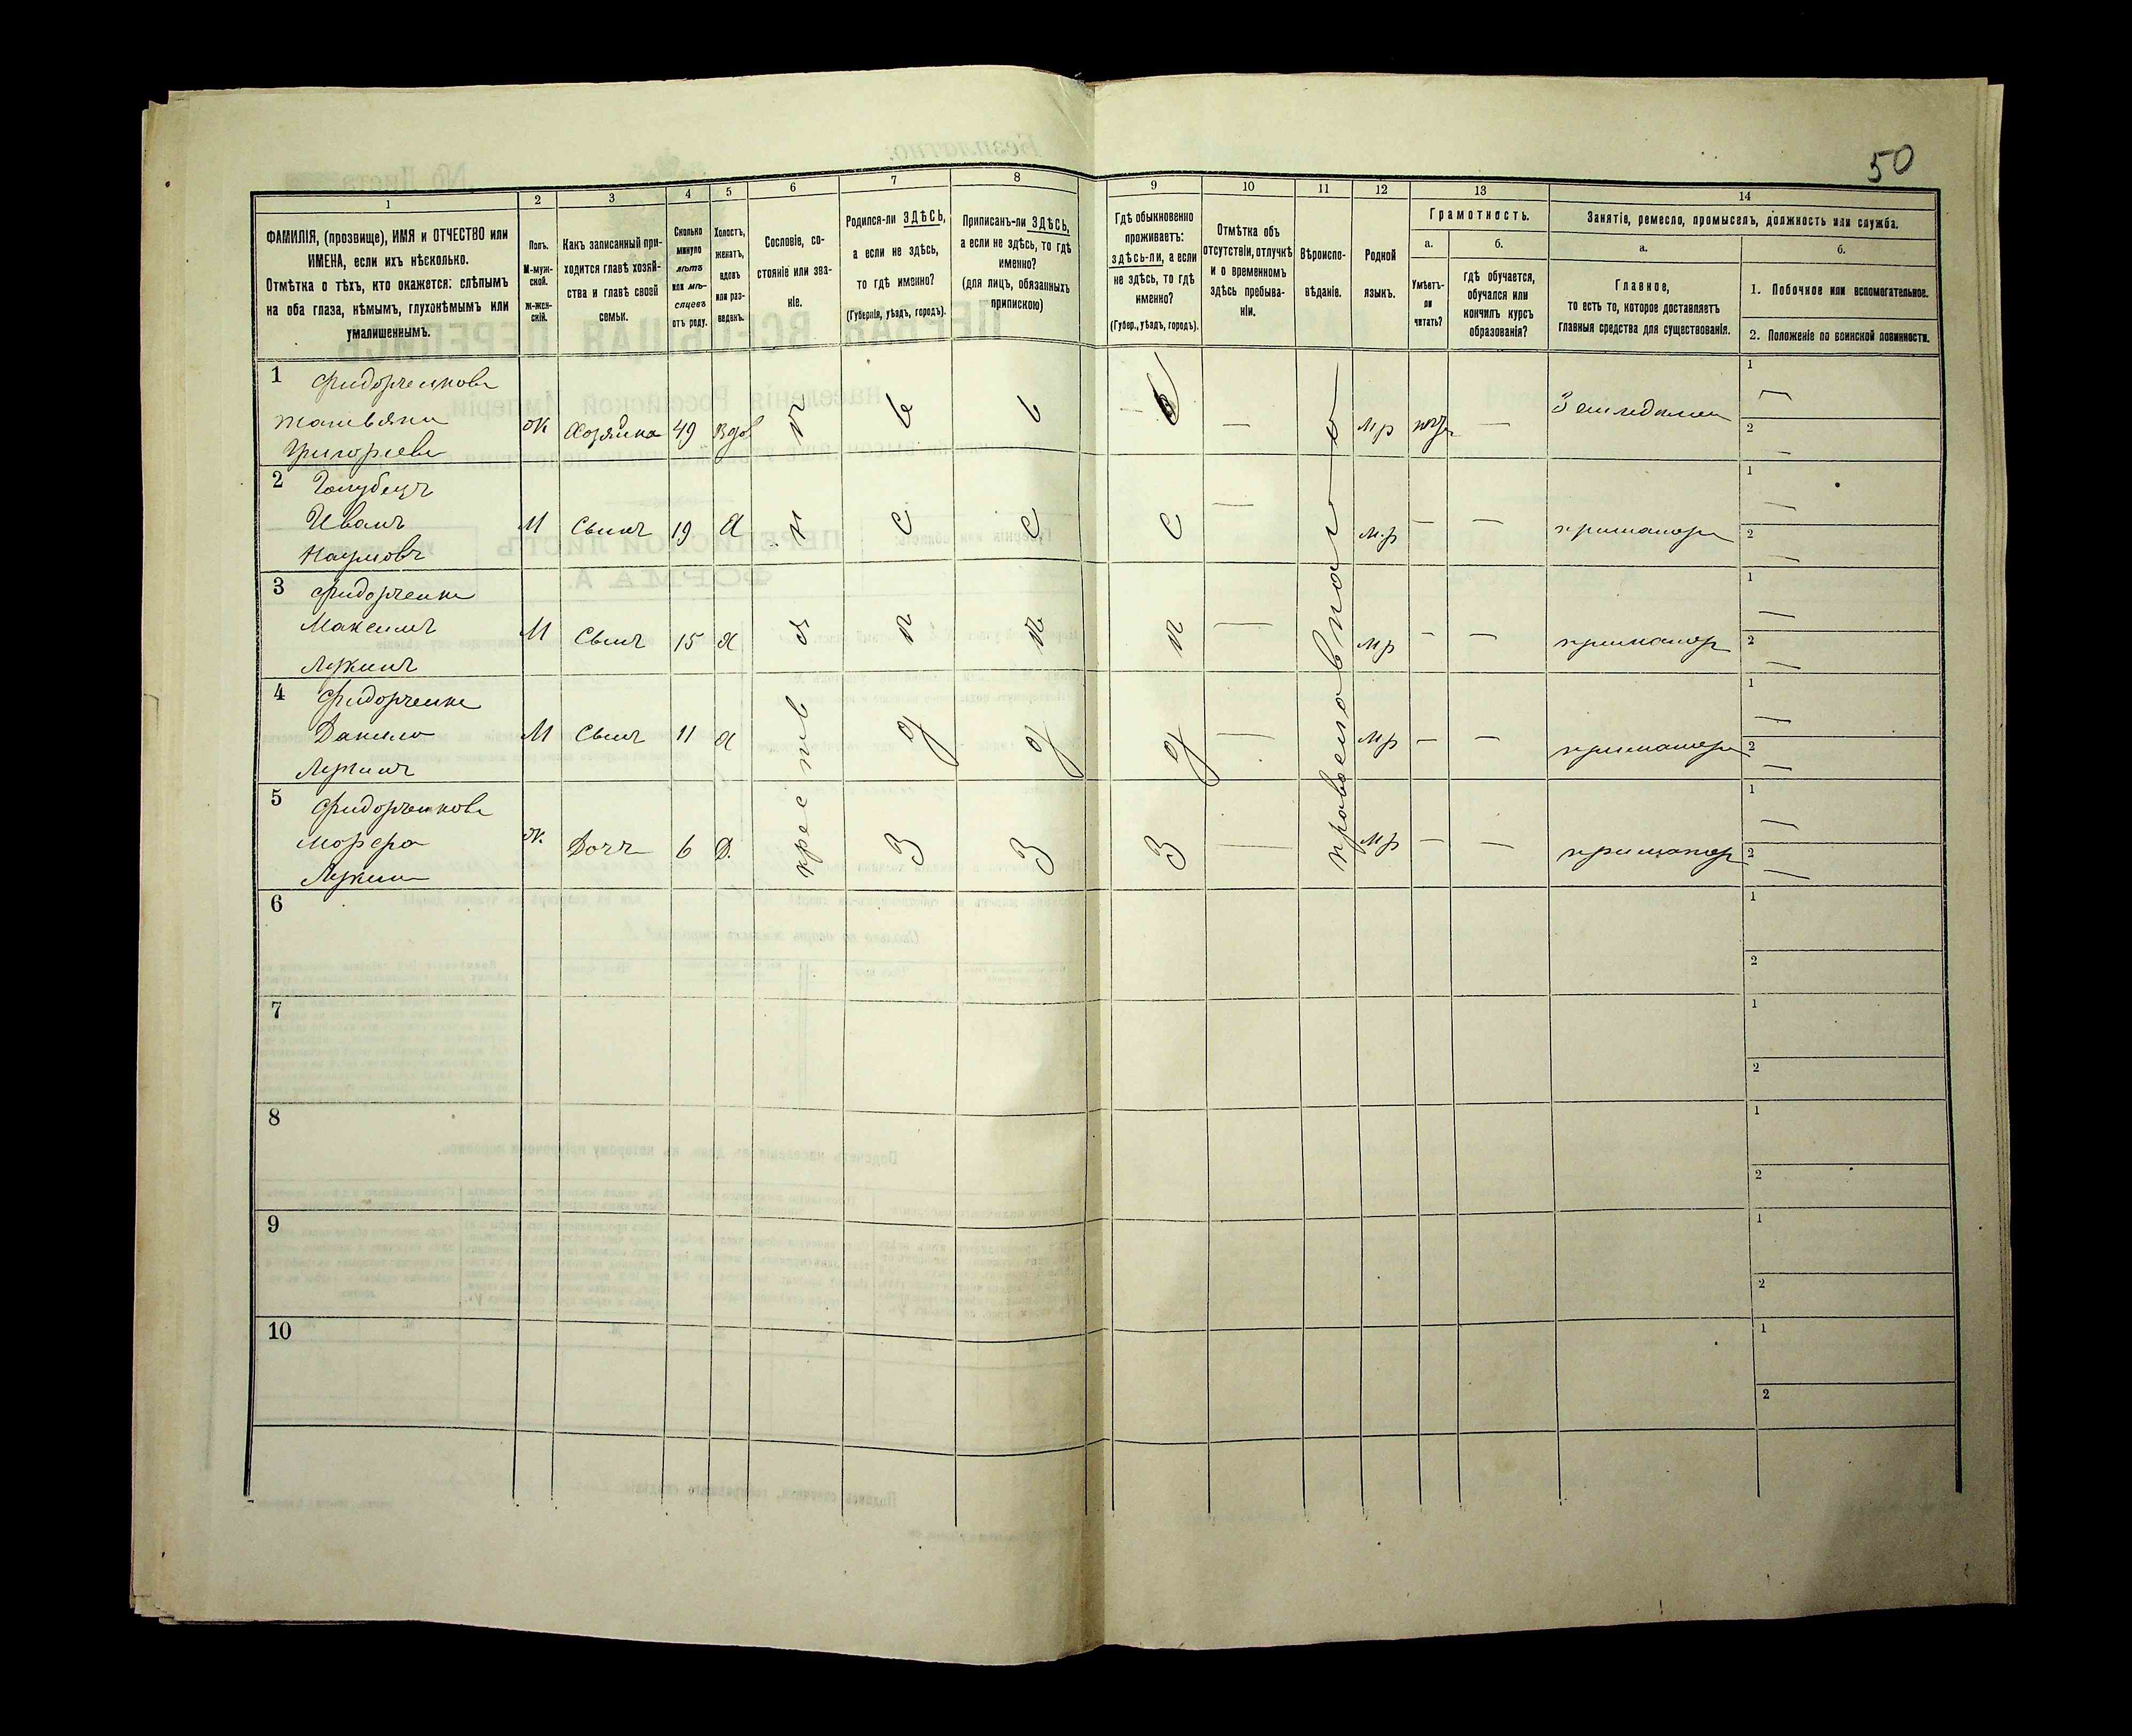 50
1
2
3
4
5
6
7
8
9
10
11
12
13
14
ФАМИЛІЯ, (прозвище), ИМЯ и ОТЧЕСТВО или
ИМЕНА, если ихъ нѣсколько.
Отмѣтка о тѣхъ, кто окажется: слѣпымъ
на оба глаза, нѣмымъ, глухонѣмымъ или
умалишеннымъ.
Полъ.
М-муж-
ской.
Ж-жен-
скій.
Какъ записанный при-
ходится главѣ хозяй-
ства и главѣ своей
семьи.
Сколько
минуло
лѣтъ
или мѣ-
сяцевъ
отъ роду.
Холостъ,
женатъ,
вдовъ
или раз-
веденъ.
Сословіе, со-
стояніе или зва-
ніе.
Родился-ли ЗДѢСЬ,
а если не здѣсь,
то гдѣ именно?
(Губернія, уѣздъ, городъ).
Приписанъ-ли ЗДѢСЬ,
а если не здѣсь, то гдѣ
именно?
(для лицъ, обязанныхъ
припискою)
Гдѣ обыкновенно
проживаетъ:
здѣсь-ли, а если
не здѣсь, то гдѣ
именно?
(Губер., уѣздъ, городъ).
Отмѣтка объ
отсутствіи, отлучкѣ
и о временномъ
здѣсь пребыва-
ніи.
Вѣроиспо-
вѣданіе.
Родной
языкъ.
Грамотность.
а.
Умѣетъ-
ли
читать?
б.
гдѣ обучается,
обучался или
кончилъ курсъ
образованія?
Занятіе, ремесло, промыселъ, должность или служба.
а.
Главное,
то есть то, которое доставляетъ
главныя средства для существованія.
б.
1. Побочное или вспомогательное.
2. Положеніе по воинской повинности.
1 Фидорченкова
Григорьева
Ж Хозяйка 49 Вдов
Мр
1 —
2 —
2 Голубецъ
Иванъ
Наумовъ
М Сынъ 19 Х — М.р — — 1 —
2 —
3 Фидорченко
Максимъ
Лукинъ
М Сынъ 15 Х — Мр — — 1 —
2 —
4 Фидорченко
Данило
Лукинъ
М Сынъ 11 Х — Мр — — 1 —
2 —
5 Фидорченкова
Лукина
Ж. Дочь 6 Д. — Мр — — 1 —
2 —
здѣсь
здѣсь
здѣсь
православнаго
6 1
2
7 1
2
8 1
2
9 1
2
10 1
2